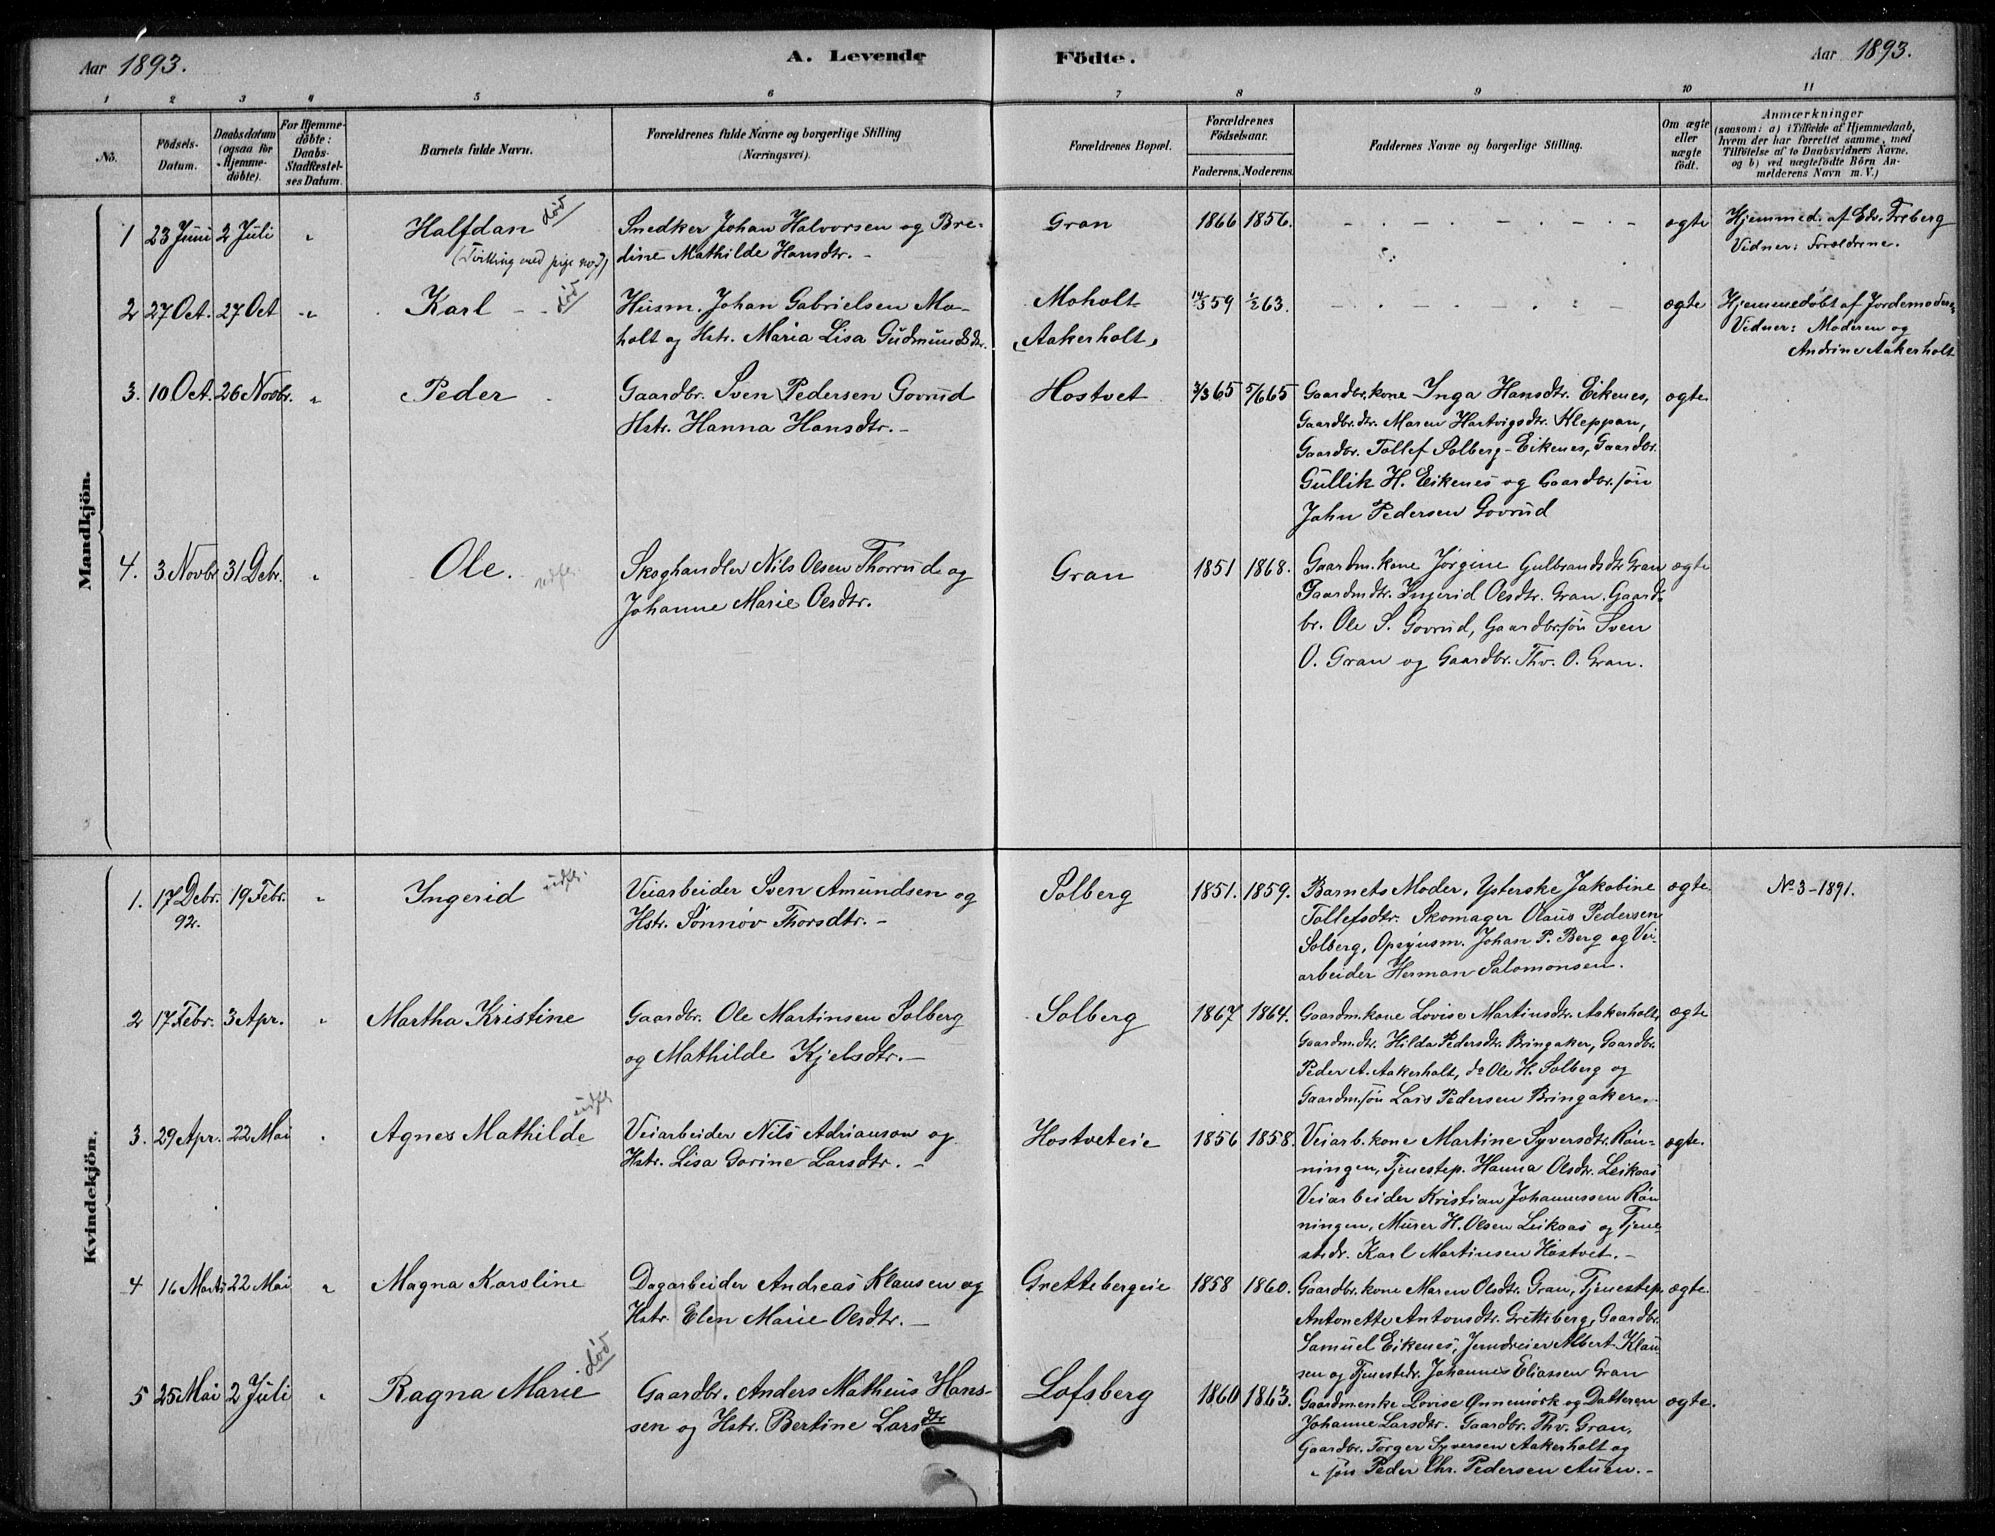 Aar 1893.
A. Levende Födte.
Aar 1893.
1 2 3 4 5 6 7 8 9 10 11
No.
Födsels-Datum.
Daabsdatum (ogsaa för Hjemme-döbte).
For Hjemme-döbte: Daabs-Stadfæstel-ses Datum.
Barnets fulde Navn.
Forældrenes fulde Navne og borgerlige Stilling
(Næringsvei).
Forældrenes Bopæl.
Forældrenes Födselsaar.
Faderens. Moderens.
Faddernes Navne og borgerlige Stilling.
Om ægte eller uægte födt.
Anmærkninger
(saasom: a) i Tilfælde af Hjemmedaab,
hvem der har forrettet samme, med
Tilföielse af to Daabsvidners Navne.
og b) ved uægtefödte Börn An-
melderens Navn m. V.)
Mandkjön.
1 23 Juni 2 Juli " Halfdan død
(Tvilling med pige No)
Snedker Johan Halvorsen og Bre-
dine Mathilde Hansdtr. -
Gran 1866 1856. - - - - - - - ægte
Hjemmed. af Edv. Freberg
Vidner: Forældrene.
2 27 Oct. 27 Oct " Karl - - død
Husm. Johan Gabrielsen Mo-
holt og Hstr. Maria Lisa Gudmundsdtr.
Moholt
(Aakerholt)
14/5 59 1/2 63. - - - - - - ægte
Hjemmedøbt af Jordemoder=
Vidner: Moderen og
Andrine Aakerholt
3. 10 Oct. 26 Novbr. " Peder
Gaardbr. Sven Pedersen Govrud
Hstr. Hanna Hansdtr. -
Hostvet 3/3 65 5/6 65
Gaardbr.kone Inga Hansdtr. Eikenes, ægte
Gaardbr.dtr. Maren Hartvigsdtr. Kleppan,
Gaardbr. Tollef Solberg-Eikenes, Gaardbr.
Gullik H. Eikenes og Gaardbr.søn
John Pedersen Govrud
4. 3 Novbr 31 Debr. " Ole. udfl.
Skoghandler Nils Olsen Thorrud og
Johanne Marie Olsdtr.
Gran 1851 1868.
Gaardm.kone Jørgine Gulbrandsdtr Gran ægte
Gaardmdtr. Ingerid Olsdtr. Gran. Gaard-
br. Ole S. Govrud, Gaardbr.søn Sven
O. Gran og Gaardbr. Thv. O. Gran.
Kvindekjön.
1. 17 Debr. 92. 19 Febr. " Ingerid udfl.
Veiarbeider Sven Amundsen og
Hstr. Sønnøv Thorsdtr. -
Solberg 1851. 1859.
Barnets Moder, Ysterske Jakobine ægte.
Tollefsdtr. Skomager Olaus Pedersen
Solberg, Opsynsm. Johan P. Berg og Vei-
arbeider Herman Salomonsen.
No 3-1891.
2 17 Febr. 3 Apr. " Martha Kristine
Gaardbr. Ole Martinsen Solberg
og Mathilde Kjelsdtr. -
Solberg 1867 1864.
Gaardm.kone Lovise Martinsdtr. Aakerholt, ægte
Gaardm.dtr. Hilda Pedersdtr. Bringaker, Gaardbr.
Peder A. Aakerholt, do Ole H. Solberg og
Gaardm.søn Lars Pedersen Bringaker.
3. 29 Apr. 22 Mai " Agnes Mathilde udfl.
Veiarbeider Nils Adrianson og
Hstr. Lisa Dorine Larsdtr. -
Hostveteie 1856 1858.
Veiarb.kone Martine Syversdtr. Røn- ægte.
ningen, Tjenestep. Hanna Olsdtr. Leikaas
Veiarbeider Kristian Johannessen Røn
ningen, Murer H. Olsen Leikaas og Tjene
stedr. Karl Martinsen Hostvet. -
4 16 Marts 22 Mai " Magna Karoline
Dagarbeider Andreas Klausen og
Hstr. Elen Marie Olsdtr. -
Grettebergeie 1858 1860.
Gaardbr.kone Maren Olsdtr. Gran, Tjenestep. ægte.
Antonette Antonsdtr. Gretteberg, Gaardbr.
Samuel Eikenes, Jerndreier Albert Klau-
sen og Tjenestedr. Johannes Eliassen Gran
5 25 Mai 2 Juli " Ragna Marie død
Gaardbr. Anders Matheus Hans-
sen og Hstr. Bertine Larsdtr
Lofsberg 1860 1863.
Gaardmenke Lovise Ønnemørk og Datteren ægte.
Johanne Larsdtr. Gaardbr. Thv. Gran,
Gaardbr. Torger Syversen Aakerholt og
" søn Peder Chr. Pedersen Auen. -